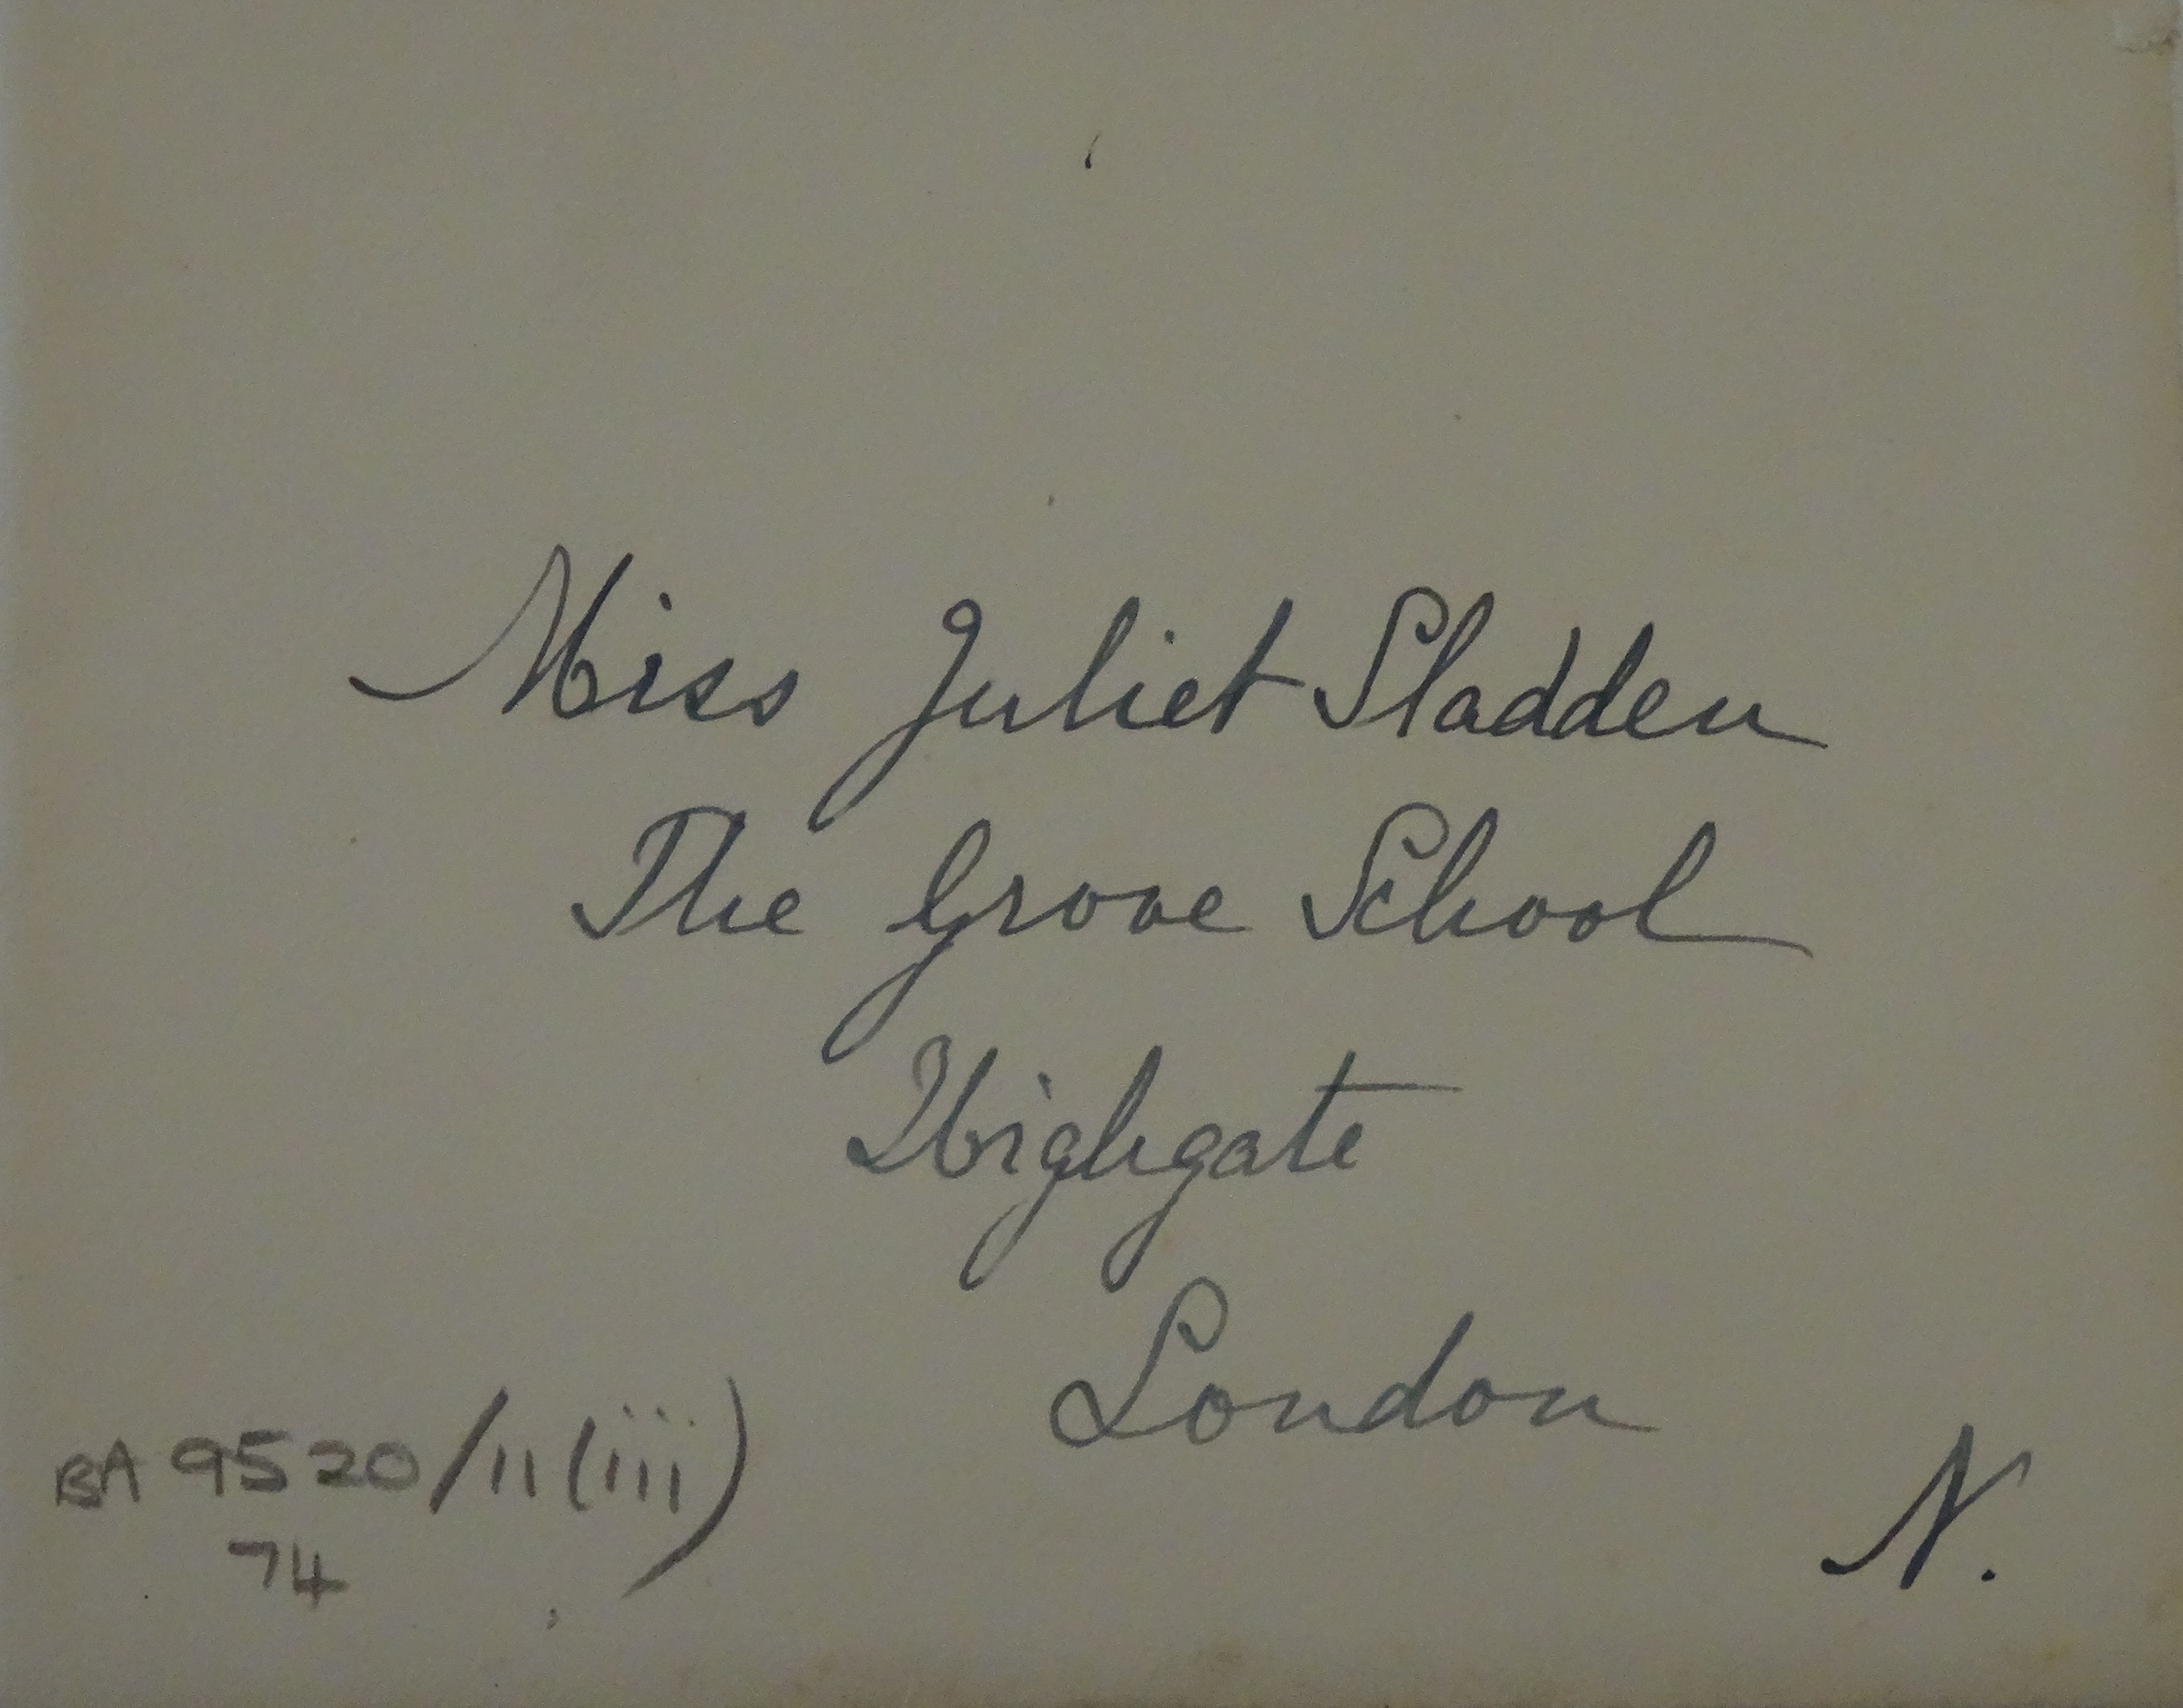 Miss Juliet Sladden
The Grove School
Highgate
London
N.
BA 9520/11(iii)
74